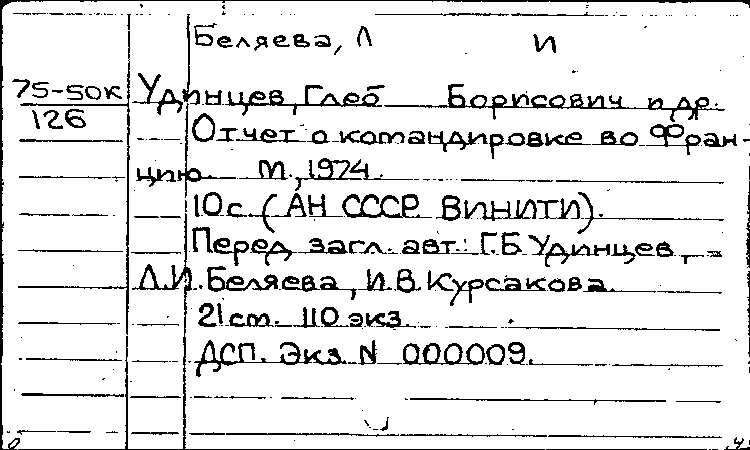 Беляева, Л И
75-50к Удинцев, Глеб Борисович и др.
126
Отчет о командировке во Фран-
цию. М., 1974.
10с. (АН СССР. ВИНИТИ).
Перед загл. авт.: Г.Б Удинцев,
Л.И. Беляева, И.В. Курсакова.
21 cm. 110 экз.
ДСП. Экз N 000009.